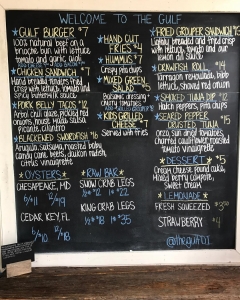 WELCOME TO THE GULF
★GULF BURGER $7
100% natural beef on a
brioche bun with lettuce
tomato and garlic aioli
★CHICKEN SANDWICH $7
Hand breaded tenders fried
crisp with lettuce, tomato and
spicy buttermilk sauce
★PORK BELLY TACOS $12
Arbol aioli, crisp pork, pickled
onions, moss, salsa
picante, cilantro
★BLACKENED SWORDFISH $16
Arugula, satsuma, roasted baby
candy cane, beets, daikon radish,
citrus vinaigrette
★OYSTERS★
CHESAPEAKE, MD
6/$11 12/$19
CEDAR KEY, FL
6/$10 12/$18
★HAND CUT
FRIES $4
★HUMMUS $7
Crispy pita chips
★MIXED GREEN
SALAD $5
★KIDS GRILLED
CHEESE $7
Served with fries
★RAW BAR★
SNOW CRAB LEGS
½# $12 1# $22
KING CRAB LEGS
½# $18 1# $35
★FRIED GROUPER SANDWICH $13
Lightly breaded and fried crisp
with lettuce, tomato, and our
lemon dill sauce
★CRAWFISH ROLL $14
Tarragon remoulade, bibb
lettuce, shaved red onion
★SMOKED TUNA DIP $12
House peppers, pita chips
★SEARED PEPPER
CRUSTED TUNA $15
Orzo, sun dried tomatoes,
charred cauliflower, roasted
tomato vinaigrette
★DESSERT★ $5
Cream cheese pound cake,
mixed berry compote,
sweet cream
★LEMONADE★
FRESH SQUEEZED $3
STRAWBERRY $4
@thegulf01